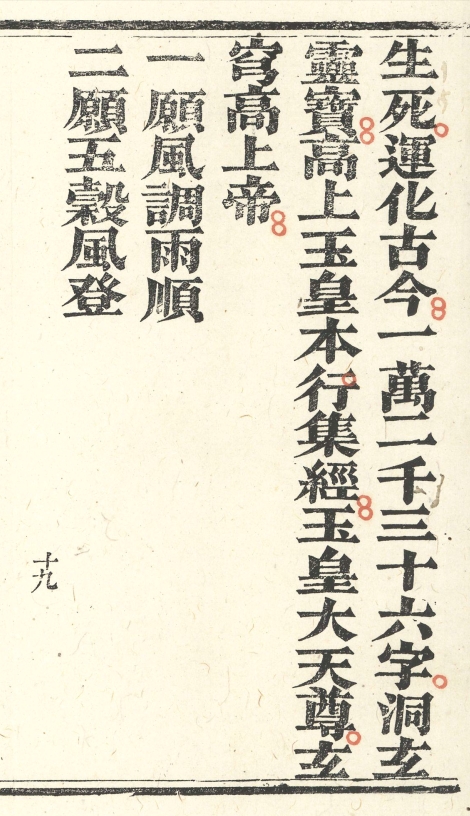 生死運化古今一萬二千三十六字洞玄
靈寶高上玉皇本行集經玉皇大天尊玄
穹高上帝
一願風調雨順
二願五穀風登
十九